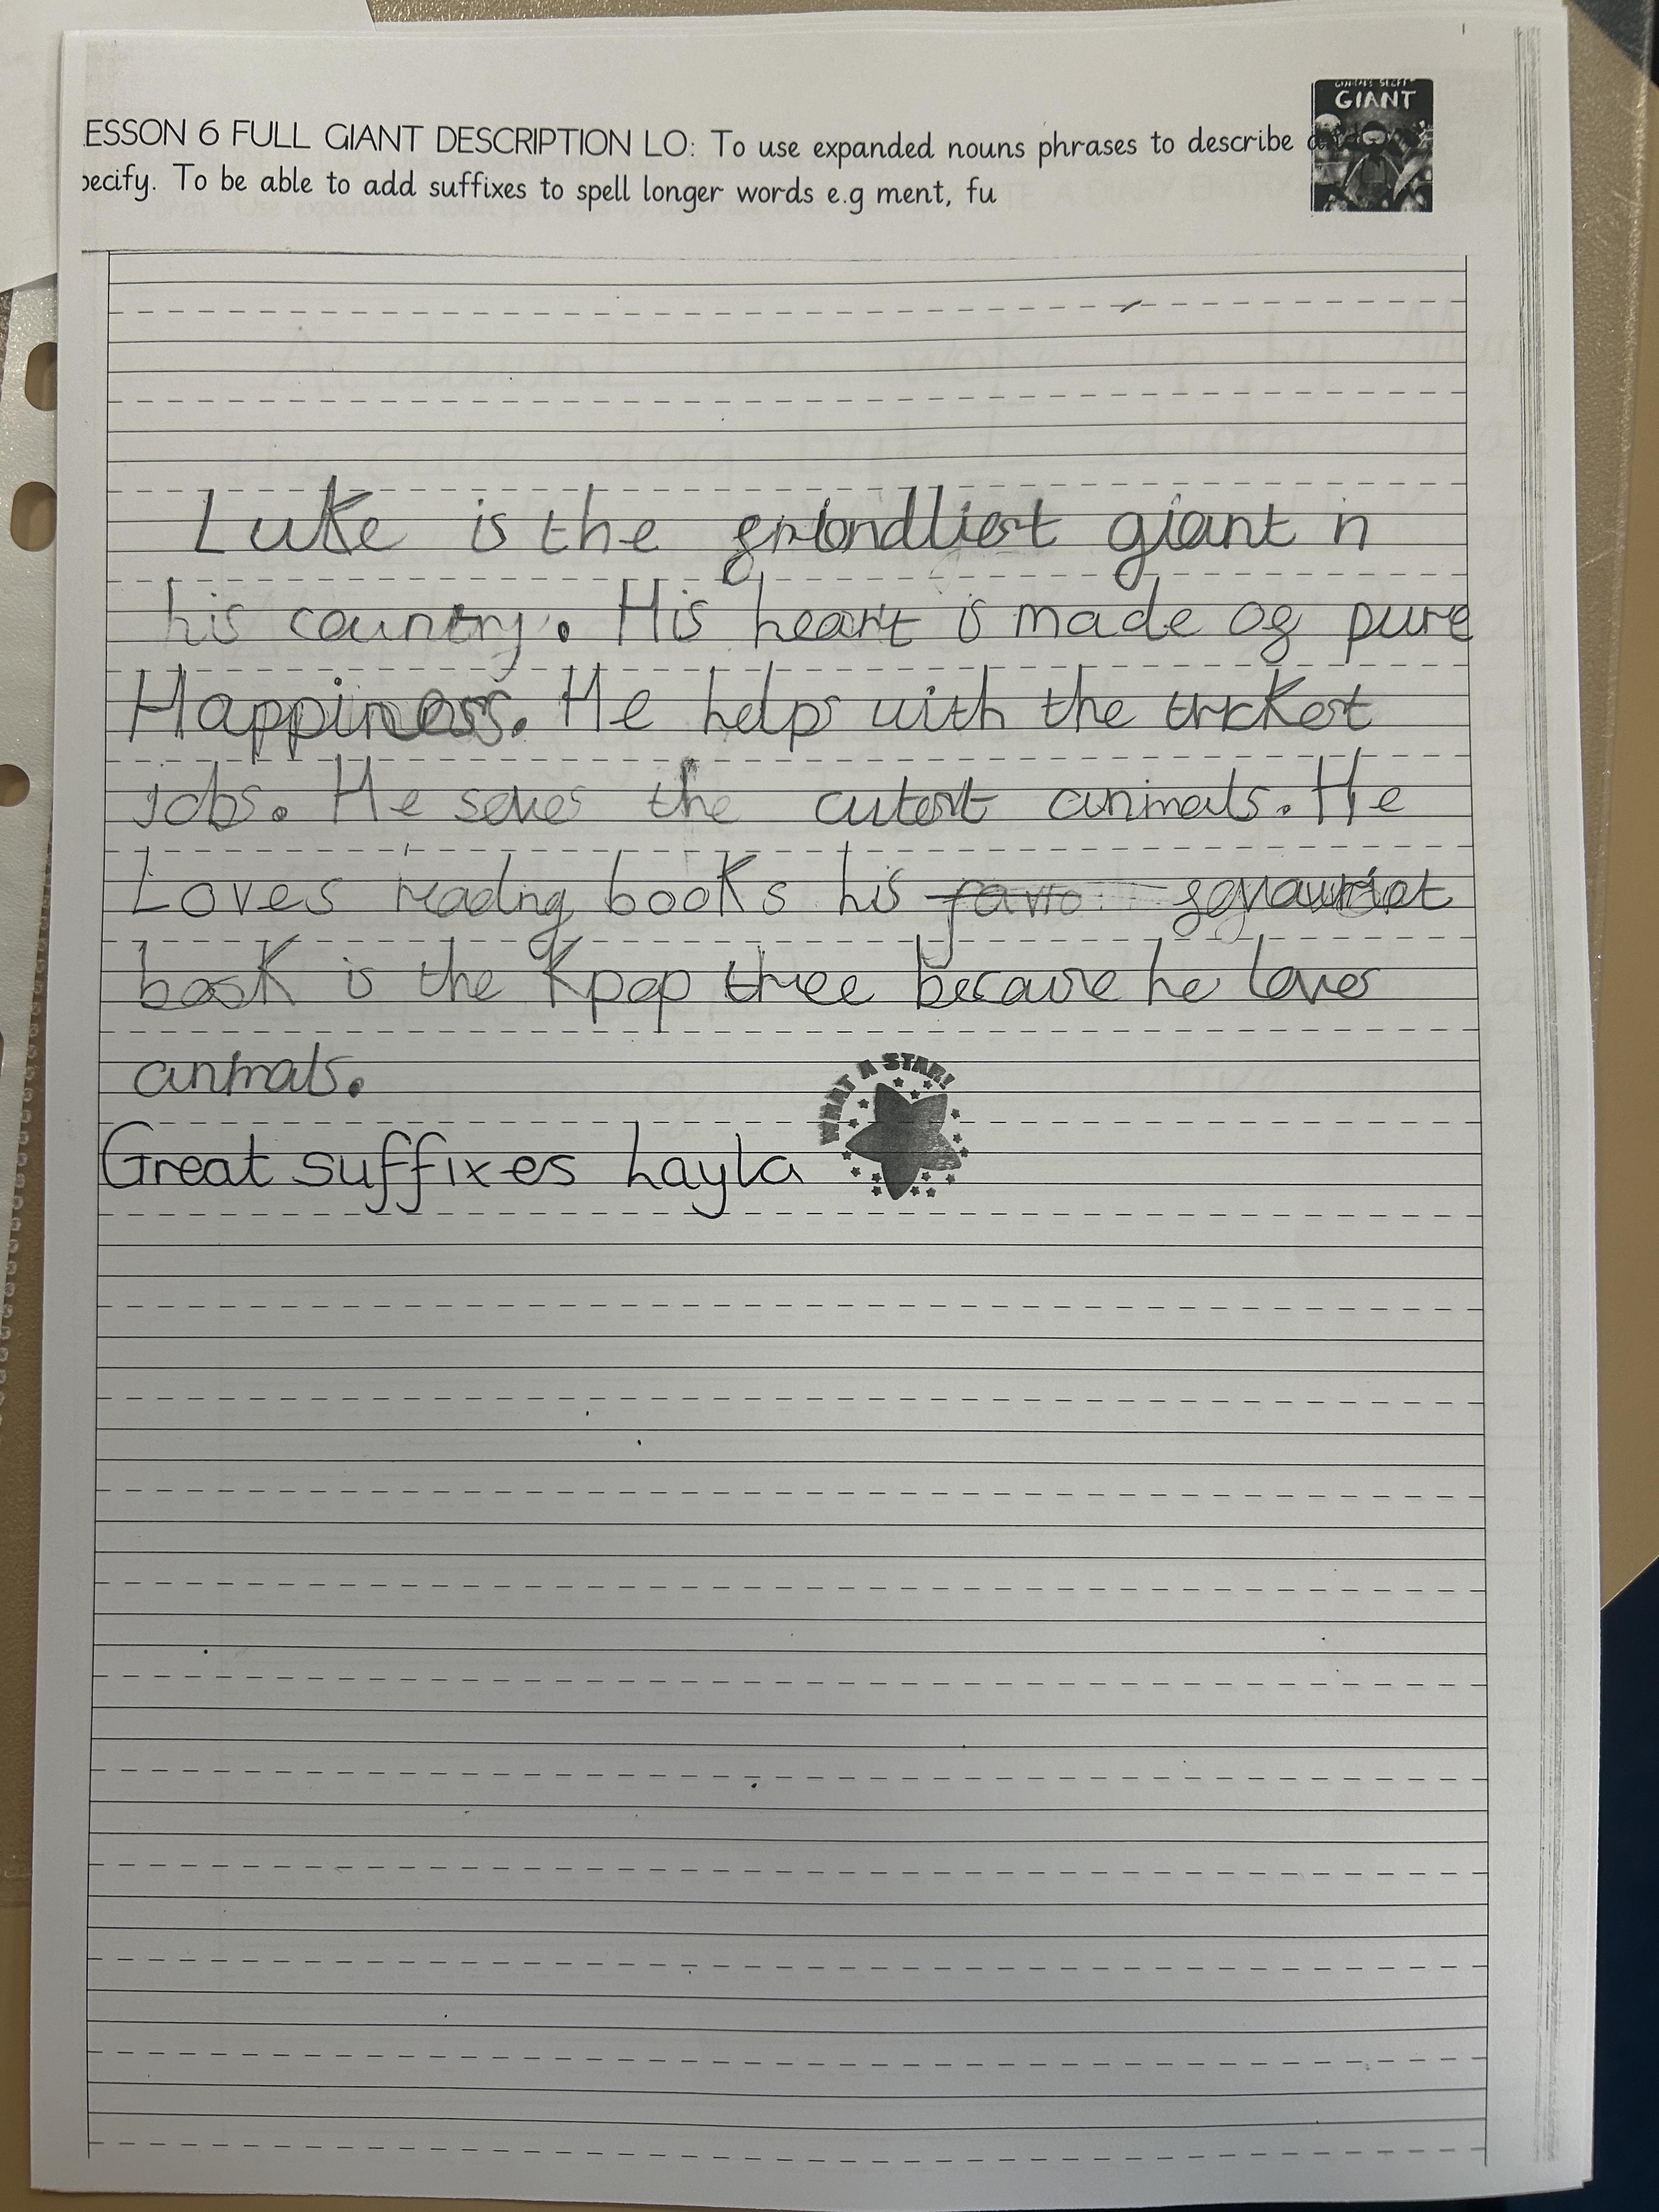 ESSON 6 FULL GIANT DESCRIPTION LO: To use expanded nouns phrases to describe and
pecify. To be able to add suffixes to spell longer words e.g ment, fu
GIANT
Luke is the friendliest giant n
his country. His heart is made of pure
Happiness. He helps with the trickest
jobs. He saves the cutest animals. He
Loves reading books his favrio favouriet
book is the Kpop three because he loves
animals.
Great suffixes Layla
WHAT A STAR!